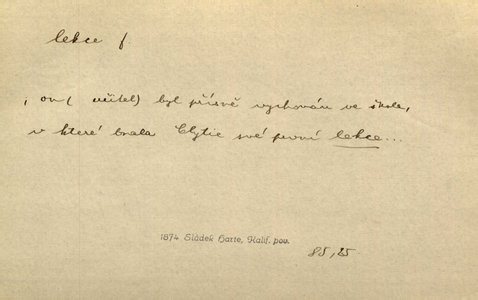 lekce f.
, on ( učitel) byl přísně vychován ve škole,
v které brala Clytie své první lekce...
1874 Sládek Harte, Kalif. pov.
85,25